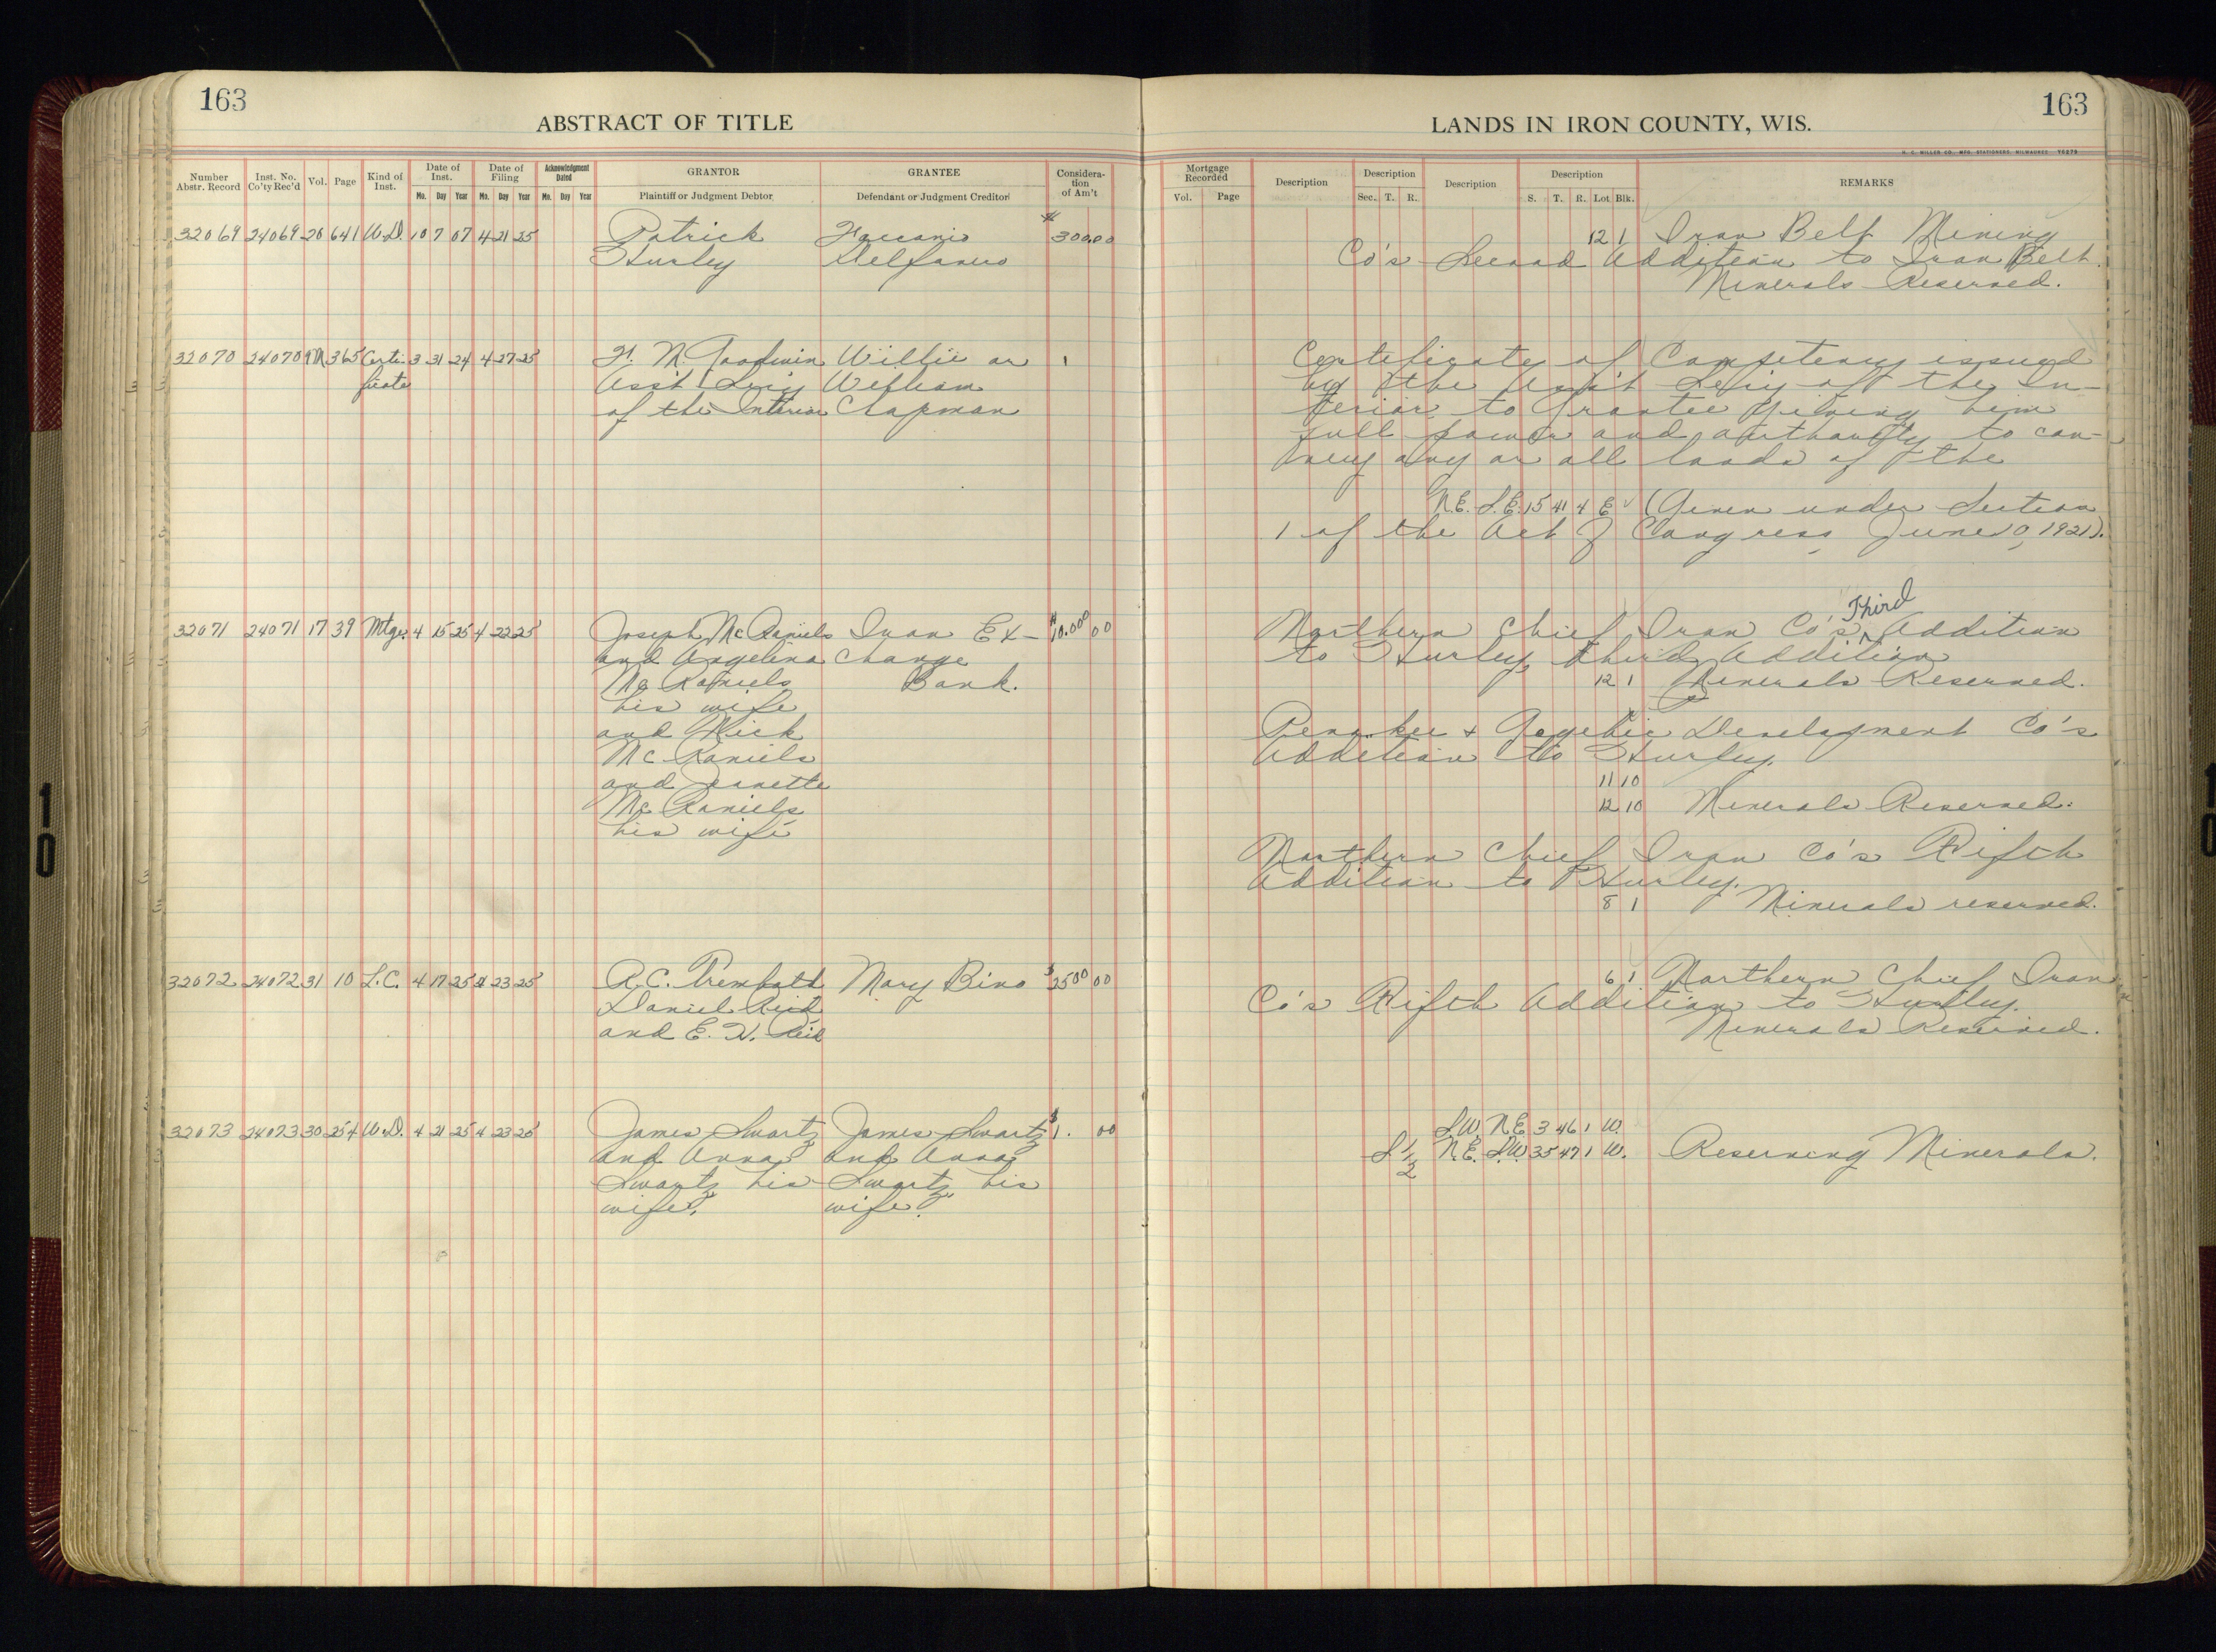 163
ABSTRACT OF TITLE
Number Abstr. Record Inst. No. Co'ty Rec'd Vol. Page Kind of Inst. Date of Inst. Date of Filing Acknowledgment Dated GRANTOR GRANTEE Considera-tion of Am't
Mo. Day Year Mo. Day Year Mo. Day Year Plaintiff or Judgment Debtor Defendant or Judgment Creditor
32069 24069 28 641 W.D. 10 7 07 4 21 25 Patrick $300.00
Hurley
32070 24070 365 Certi- 3 31 24 4 27 25 F. M. Goodwin Willie or 1
ficate Ass't Secy William
of the Interior Chapman
32071 24071 17 39 Mtge. 4 15 25 4 22 25 Joseph McRaniels Iron Ex- $10.000 00
and Angelina change
McRaniels Bank.
his wife
and Nick
McRaniels
and Jeanette
McRaniels
his wife
32072 24072 31 10 L.C. 4 17 25 4 23 25 R.C. Trembath Mary Bino $2500 00
Daniel Reid
and E. H. Reid
32073 24073 30 254 W.D. 4 21 25 4 23 25 James Swartz James Swartz $1. 00
and Anna and Anna
Swartz his Swartz his
wife. wife.
163
LANDS IN IRON COUNTY, WIS.
H. C. MILLER CO., MFG. STATIONERS, MILWAUKEE
Mortgage Recorded Description Description Description Description REMARKS
Vol. Page Sec. T. R. S. T. R. Lot Blk.
12 1 Iron Belt Mining
Co's Second Addition to Iron Belt.
Minerals Reserved.
Certificate of Competency issued
by the Ass't Secy of the In-
terior to Grantee giving him
full power and authority to con-
vey any or all lands of the
N.E. S.E. 15 41 4 E (Given under Section
1 of the Act of Congress June 10, 1921).
Northern Chief Iron Co's Third Addition
to Hurley, third Addition
12 1 Minerals Reserved.
Penokee & Gogebic Development Co's
Addition to Hurley.
11 10
12 10 Minerals Reserved.
Northern Chief Iron Co's Fifth
Addition to Hurley.
8 1 Minerals reserved.
6 1 Northern Chief Iron
Co's Fifth Addition to Hurley.
Minerals Reserved.
S.W. N.E 3 46 1 W.
S 1/2 N.E. S.W 35 47 1 W. Reserving Minerals.